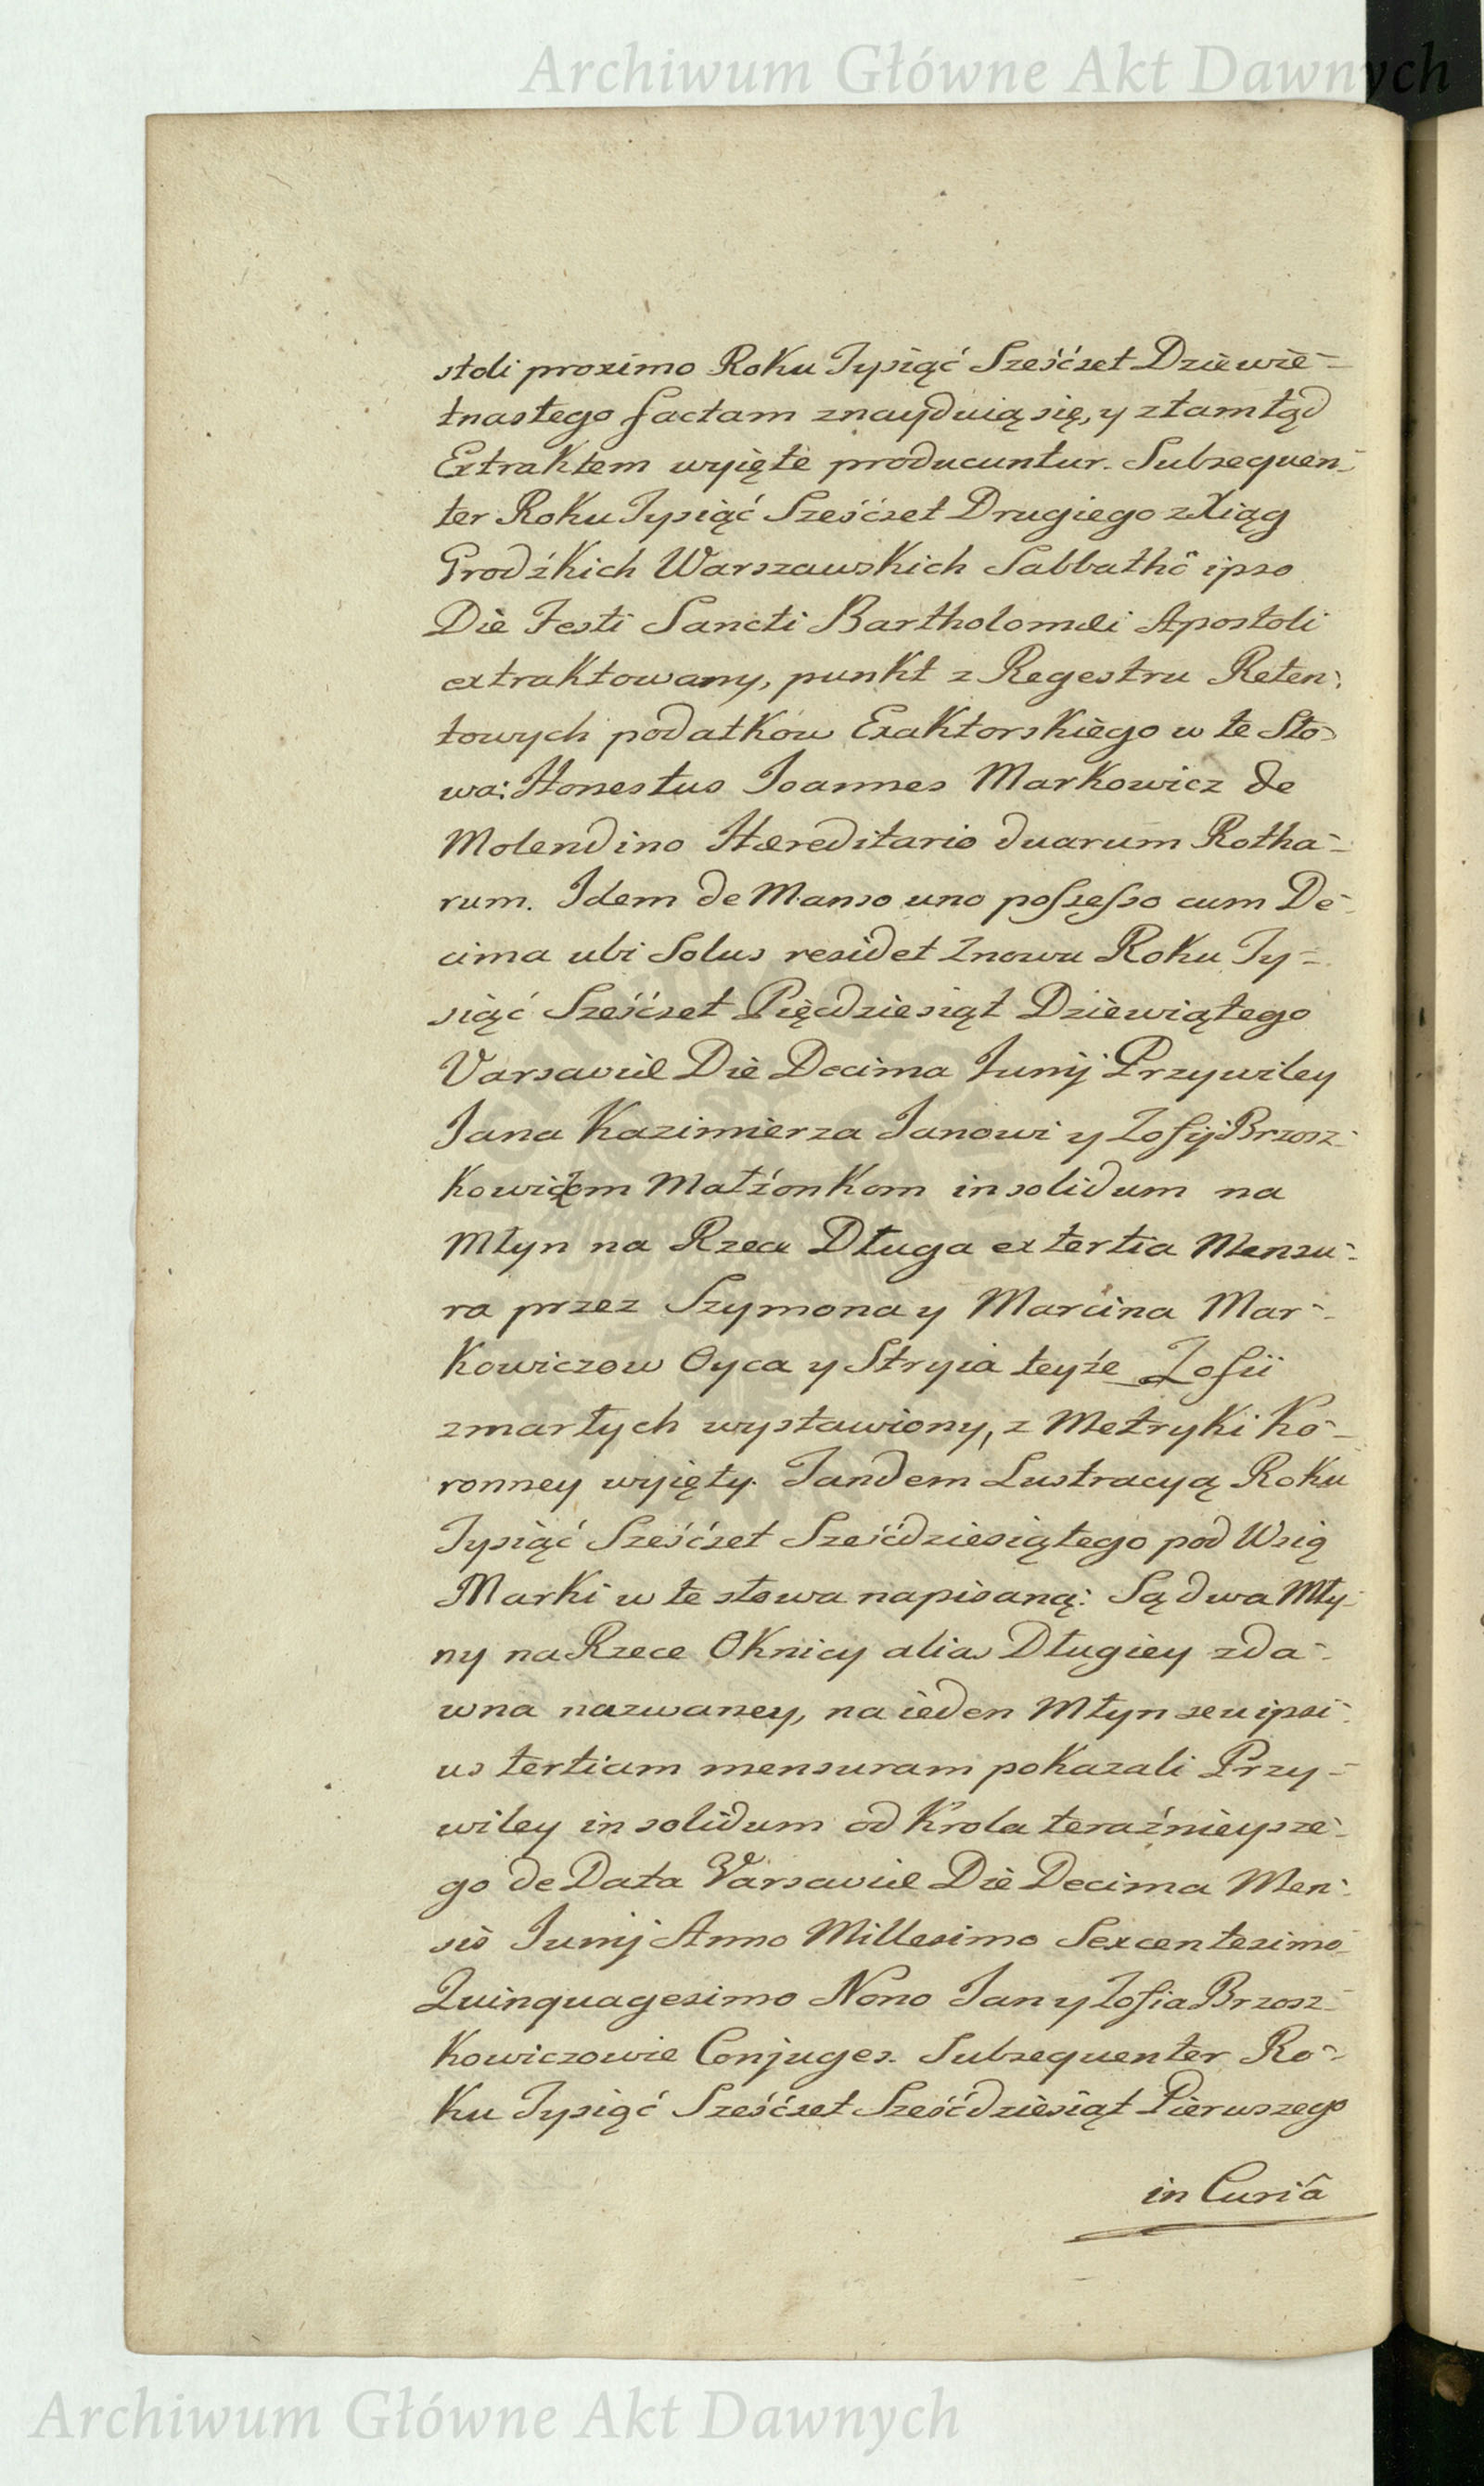 Archiwum Główne Akt Dawnych
stoli proximo Roku Tysiąć Sześćset Dziewie-
tnastego factam znayduią się, y ztamtąd
Extraktem wyięte producuntur. Subsequen-
ter Roku Tysiąć Sześćset Drugiego z Xiąg
Grodźkich Warszawskich Sabbathô ipso
Die Festi Sancti Bartholomæi Apostoli
extraktowany, punkt z Regestru Reten-
towych podatkow Exaktorskiego w te Sło-
wa: Honestus Joannes Markowicz de
Molendino Hæreditario duarum Rotha-
rum. Idem de Manso uno possesso cum De-
cima ubi Solus residet Znowu Roku Ty-
siąć Sześćset Pięcdziesiąt Dziewiątego
Varsaviæ Die Decima Junij Przywiley
Jana Kazimierza Janowi y Zofij Brzosz-
kowiczom Małżonkom in solidum na
Młyn na Rzece Długa ex tertia Mensu-
ra przez Szymona y Marcina Mar-
kowiczow Oyca y Stryia teyże Zofii
zmarłych wystawiony, z Metryki Ko-
ronney wyięty. Tandem Lustracyą Roku
Tysiąć Sześćset Sześćdziesiątego pod Wsią
Marki w te słowa napisaną: Są dwa Mły-
ny na Rzece Oknicy alias Długiey zda-
wna nazwaney, na ieden Młyn seu ipsi-
us tertiam mensuram pokazali Przy-
wiley in solidum od Krola teraźnieysze-
go de Data Varsaviæ Die Decima Men-
sis Junij Anno Millesimo Sexcentesimo
Quinquagesimo Nono Jan y Zofia Brzosz-
kowiczowie Conjuges. Subsequenter Ro-
ku Tysiąć Sześćset Sześćdziesiąt Pierwszego
in Curiâ
Archiwum Główne Akt Dawnych